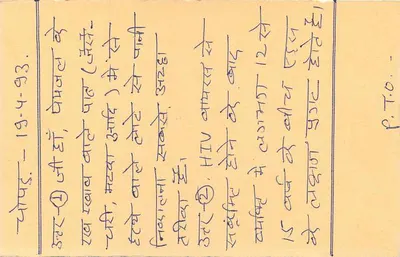 चोपुर - 19-4-93.
उत्तर-① जी हाँ, पेयजल के
रख रखाव वाले पात्र (जैसे-
घरी, मटका आदि) में से
हत्थे वाले लोटे से पानी
निकालना सबसे अच्छा
तरीका है।
उत्तर-②. HIV वायरस से
संक्रमित होने के बाद
व्यक्ति में लगभग 12 से
15 वर्ष के बीच एड्स
के लक्षण प्रगट होते हैं।
P.T.O. -